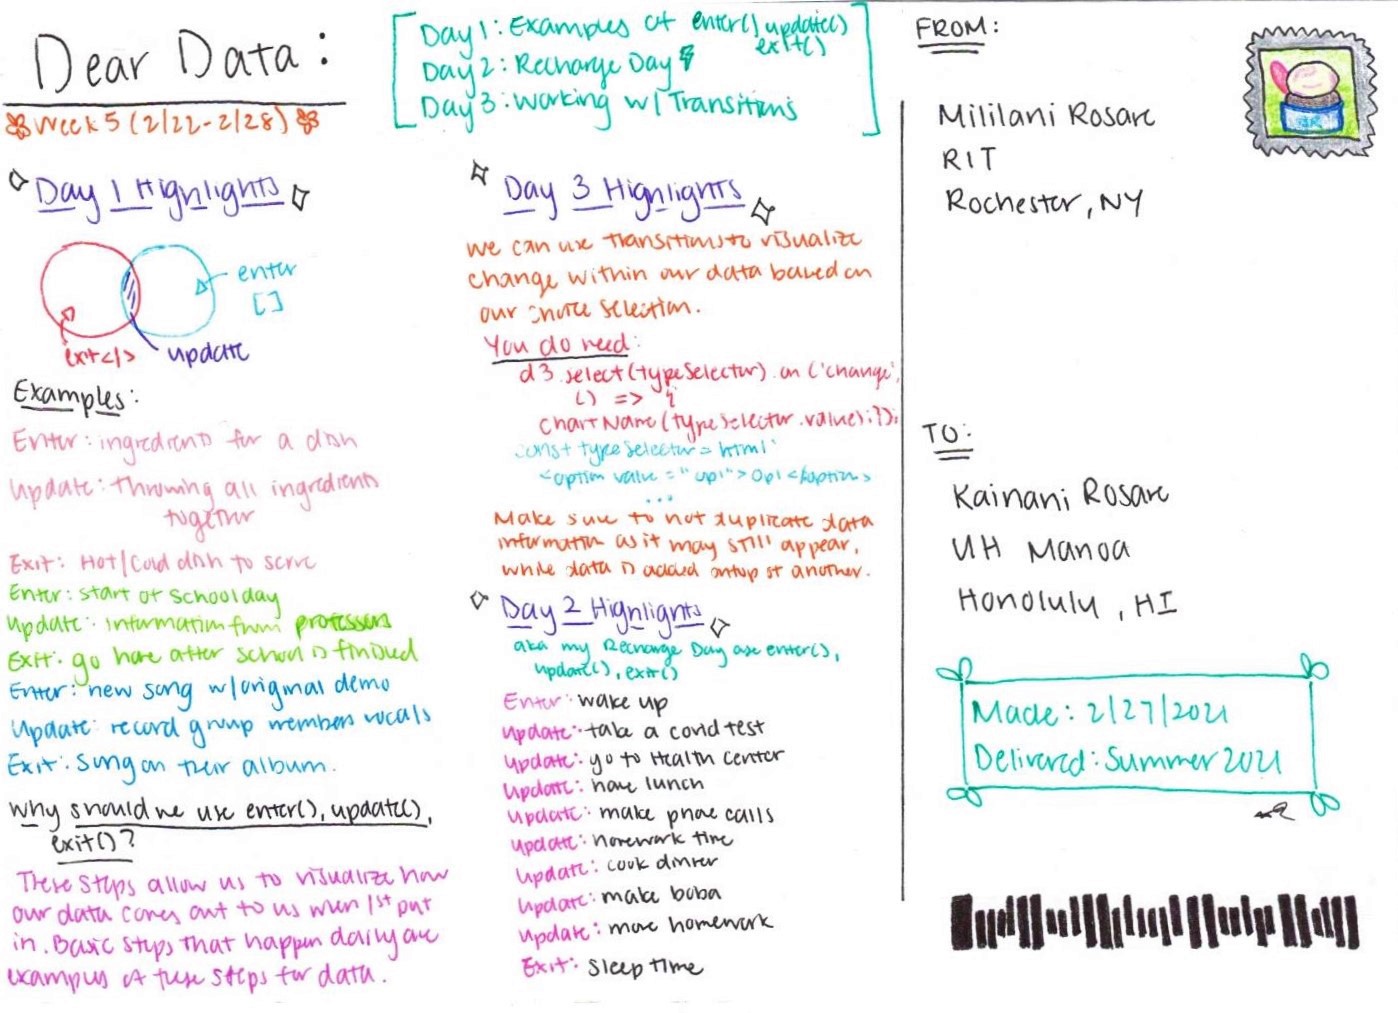 Dear Data:
Week 5 (2/22-2/28)
Day 1: Examples of enter() update()
exit()
Day 2: Recharge Day
Day 3: Working w/ Transitions
Day 1 Highlights
enter
[]
exit</>
update
Examples:
Enter: ingredients for a dish
Update: Throwing all ingredients
together
Exit: Hot/Cold dish to serve
Enter: start of school day
Update: information from professors
Exit: go home after school is finished
Enter: new song w/ original demo
Update: record group members vocals
Exit: Song on their album.
Why should we use enter(), update(),
exit()?
These steps allow us to visualize how
our data comes out to us when 1st put
in. Basic steps that happen daily are
examples of these steps for data.
Day 3 Highlights
We can use transitions to visualize
change within our data based on
our choice selection.
You do need:
d3.select(typeSelector).on('change',
() => {
chartName(typeSelector.value);});
const typeSelector = html`
<option value = "op1">Op1</option>
...
Make sure to not duplicate data
information as it may still appear,
while data is added ontop of another.
Day 2 Highlights
aka my Recharge Day as enter(),
update(), exit()
Enter: wake up
Update: take a covid test
Update: go to Health Center
Update: have lunch
Update: make phone calls
Update: homework time
Update: cook dinner
Update: make boba
Update: more homework
Exit: sleep time
FROM:
Mililani Rosare
RIT
Rochester, NY
TO:
Kainani Rosare
UH Manoa
Honolulu, HI
Made: 2/27/2021
Delivered: Summer 2021